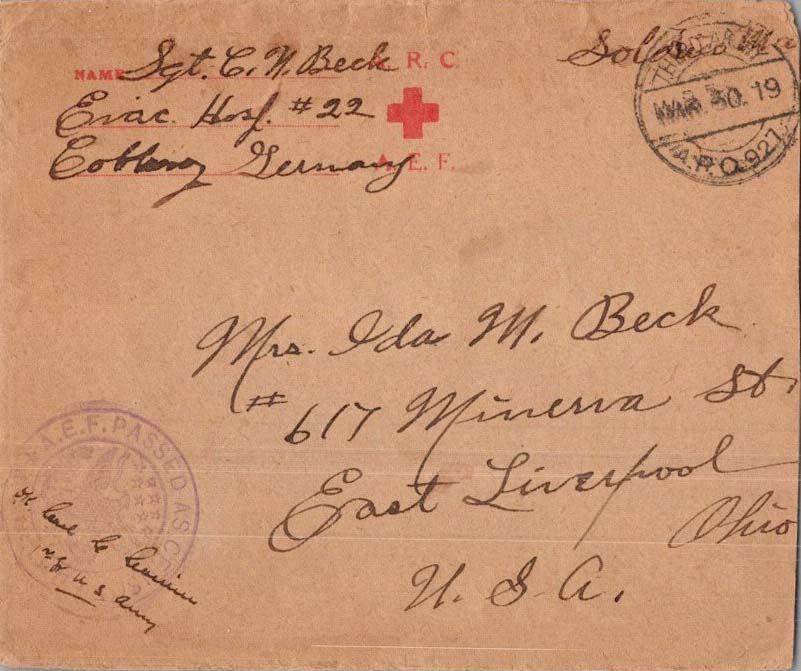 NAME Sgt. C. N. Beck A. R. C.
Evac. Hosp. #22
Germany A. E. F.
MAR 30. 19
A.P.O. 927
Mrs. Ida M. Beck
# 617 Minerva St.
East Liverpool
Ohio
U. S. A.
A.E.F. PASSED AS
OK
U S Army